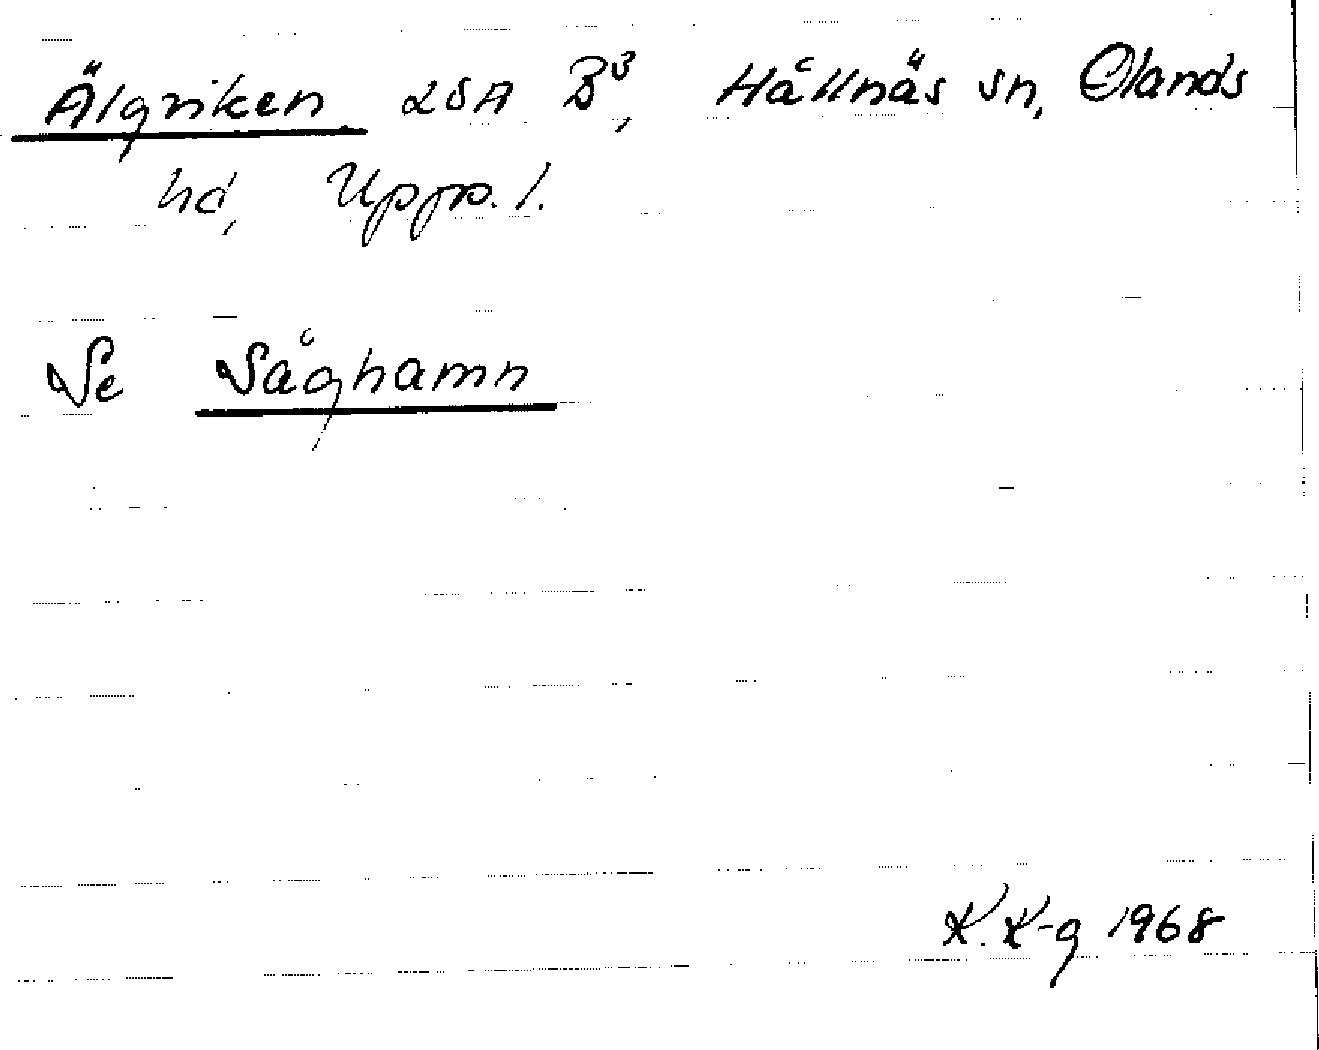 Älgriken LSA B³, Hållnäs sn, Olands
hd, Upps. l.
Se Såghamn
K. K-g 1968